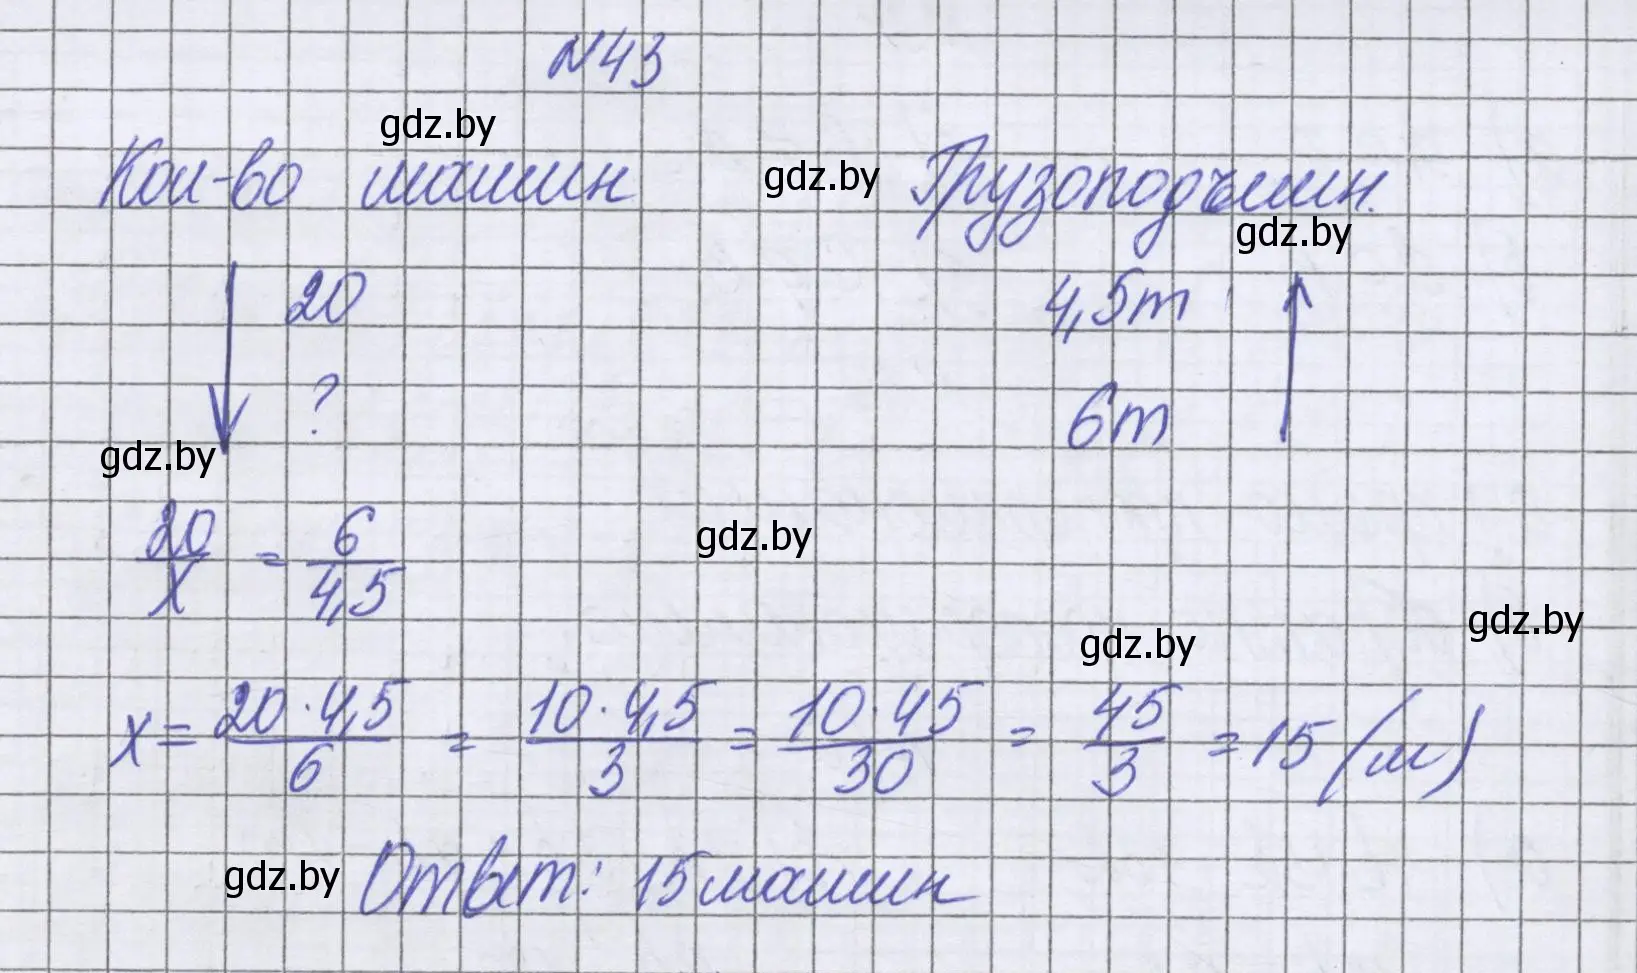 N43
gdz.by
Кол-во машин gdz.by Грузоподъемн.
gdz.by
20 4,5т
? 6т
gdz.by
20/x = 6/4,5
gdz.by
gdz.by
gdz.by
x = 20·4,5/6 = 10·4,5/3 = 10·45/30 = 45/3 = 15 (м)
gdz.by Ответ: 15 машин